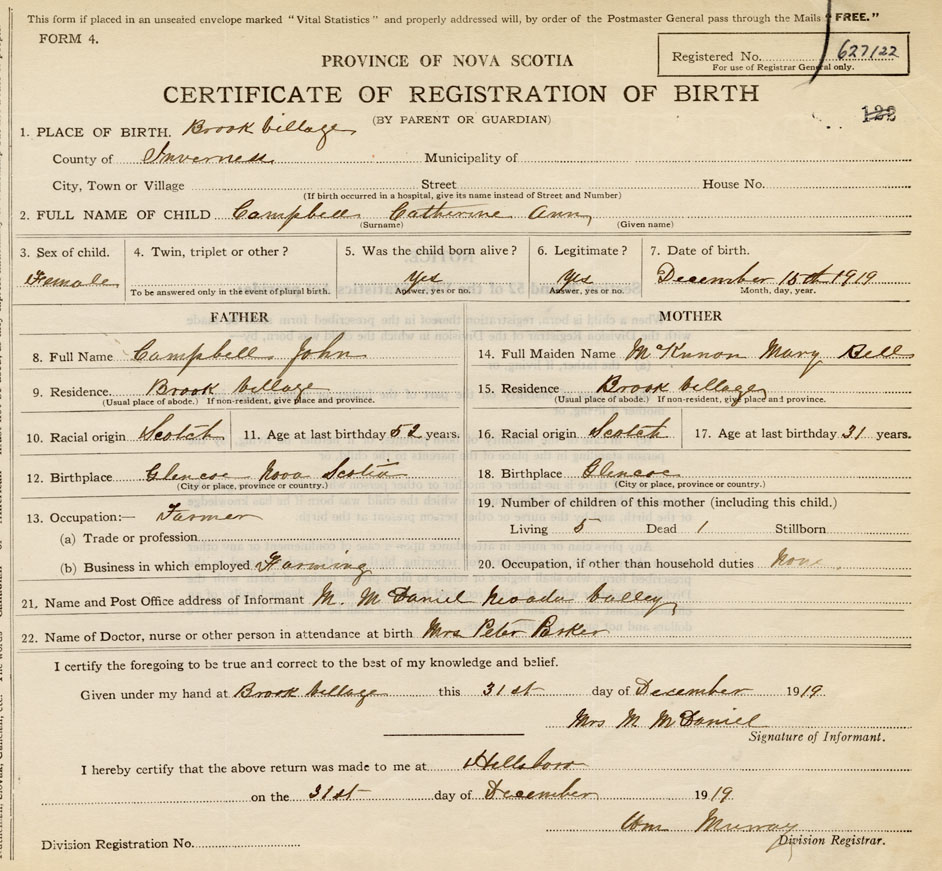 This form if placed in an unsealed envelope marked "Vital Statistics" and properly addressed will, by order of the Postmaster General pass through the Mails "FREE."
FORM 4.
Registered No. 627/22
For use of Registrar General only.
PROVINCE OF NOVA SCOTIA
CERTIFICATE OF REGISTRATION OF BIRTH
(BY PARENT OR GUARDIAN)
122
1. PLACE OF BIRTH. Brook Village
County of Inverness Municipality of
City, Town or Village Street House No.
(If birth occurred in a hospital, give its name instead of Street and Number)
2. FULL NAME OF CHILD Campbell Catherine Ann
(Surname) (Given name)
3. Sex of child. 4. Twin, triplet or other? 5. Was the child born alive? 6. Legitimate? 7. Date of birth.
Female Yes Yes December 15th 1919
To be answered only in the event of plural birth. Answer, yes or no. Answer, yes or no. Month, day, year.
FATHER MOTHER
8. Full Name Campbell John 14. Full Maiden Name McKinnon Mary Bell
9. Residence Brook Village 15. Residence Brook Village
(Usual place of abode.) If non-resident, give place and province. (Usual place of abode.) If non-resident, give place and province.
10. Racial origin Scotch 11. Age at last birthday 52 years. 16. Racial origin Scotch 17. Age at last birthday 31 years.
12. Birthplace Glencoe Nova Scotia 18. Birthplace Glencoe
(City or place, province or country.) (City or place, province or country.)
13. Occupation:— Farmer 19. Number of children of this mother (including this child.)
(a) Trade or profession Living 5 Dead 1 Stillborn
(b) Business in which employed Farming 20. Occupation, if other than household duties None
21. Name and Post Office address of Informant M. McDaniel Nevada Valley
22. Name of Doctor, nurse or other person in attendance at birth Mrs Peter Parker
I certify the foregoing to be true and correct to the best of my knowledge and belief.
Given under my hand at Brook Village this 31st day of December 1919.
Mrs M McDaniel
Signature of Informant.
I hereby certify that the above return was made to me at Hillsboro
on the 31st day of December 1919.
Wm Murray
Division Registration No. Division Registrar.